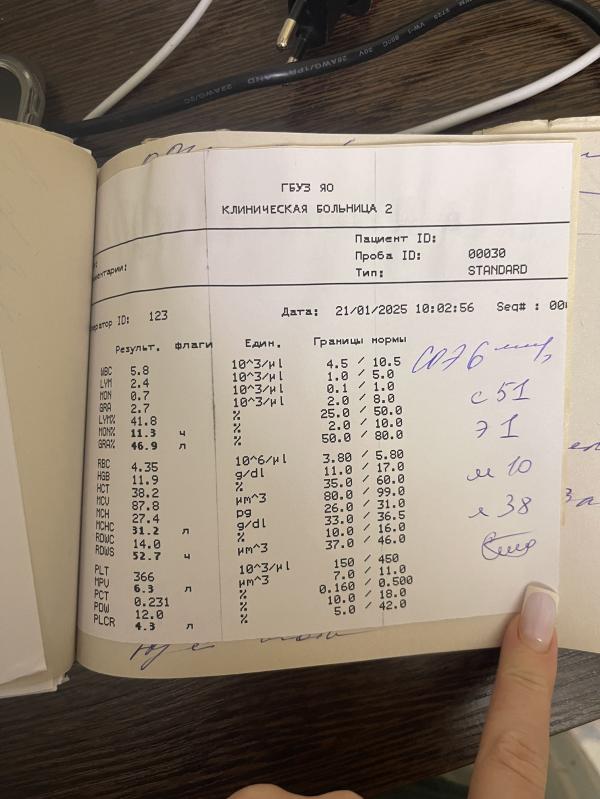 ГБУЗ ЯО
КЛИНИЧЕСКАЯ БОЛЬНИЦА 2
Пациент ID:
Проба ID: 00030
Тип: STANDARD
ID: 123 Дата: 21/01/2025 10:02:56 Seq# :
Результ. флаги Един. Границы нормы
WBC 5.8 10^3/µl 4.5 / 10.5
LYM 2.4 10^3/µl 1.0 / 5.0
MON 0.7 10^3/µl 0.1 / 1.0
GRA 2.7 10^3/µl 2.0 / 8.0
LYM% 41.8 % 25.0 / 50.0
MON% 11.3 ч % 2.0 / 10.0
GRA% 46.9 л % 50.0 / 80.0
RBC 4.35 10^6/µl 3.80 / 5.80
HGB 11.9 g/dl 11.0 / 17.0
HCT 38.2 % 35.0 / 60.0
MCV 87.8 µm^3 80.0 / 99.0
MCH 27.4 pg 26.0 / 31.0
MCHC 31.2 л g/dl 33.0 / 36.5
RDWC 14.0 % 10.0 / 16.0
RDWS 52.7 ч µm^3 37.0 / 46.0
PLT 366 10^3/µl 150 / 450
MPV 6.3 л µm^3 7.0 / 11.0
PCT 0.231 % 0.160 / 0.500
PDW 12.0 % 10.0 / 18.0
PLCR 4.3 л % 5.0 / 42.0
СОЭ 6
с 51
э 1
м 10
л 38